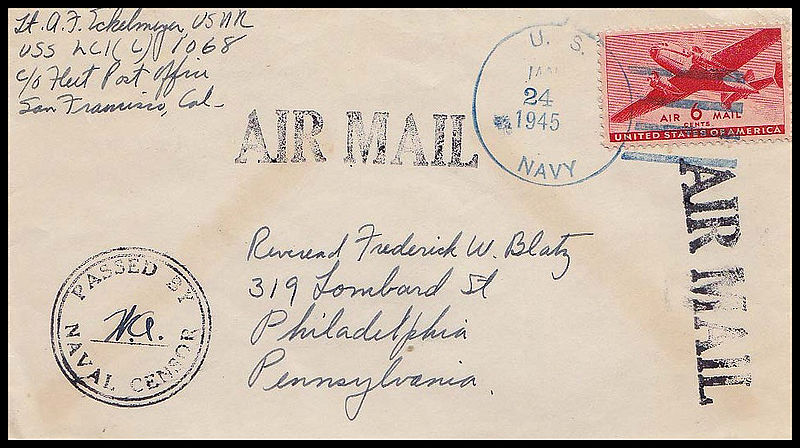 Lt. A. F. Eckelmeyer, USNR
USS LCI(L) 1068
c/o Fleet Post Office
San Francisco, Cal.
AIR MAIL
U. S.
JAN
24
1945
NAVY
AIR 6 MAIL
CENTS
UNITED STATES OF AMERICA
AIR MAIL
Reverend Frederick W. Blatz
319 Lombard St
Philadelphia
Pennsylvania.
PASSED BY
NAVAL CENSOR